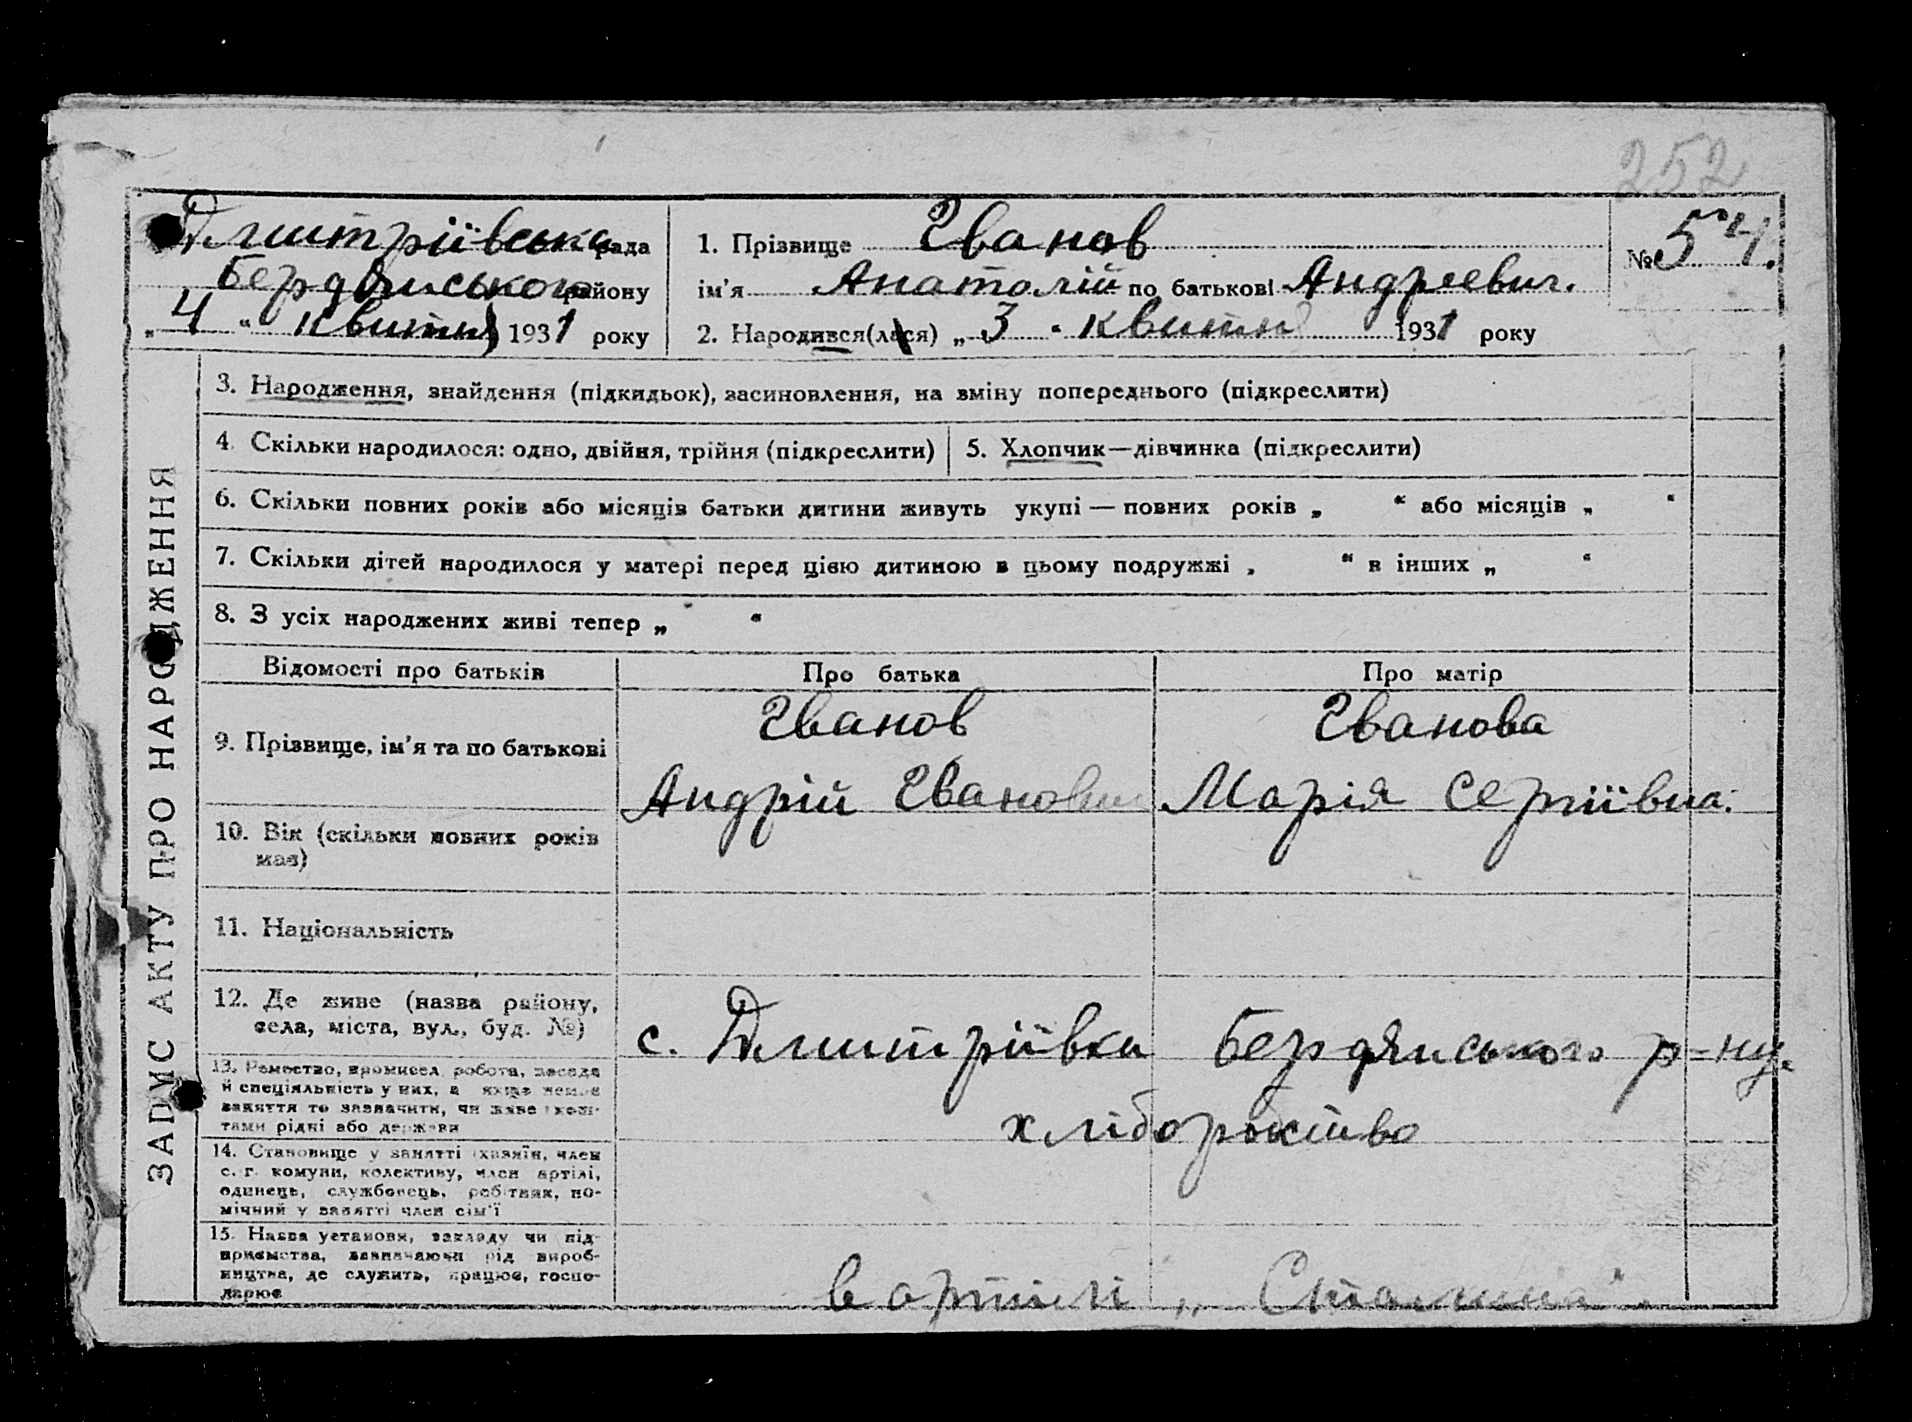 252
Дмитріївська рада
Бердянського району
„ 4 “ квитня 1931 року
1. Прізвище Іванов
ім'я Анатолій по батькові Андреевич.
2. Народився(лася) „ 3 “ квитня 1931 року
№ 54.
ЗАПИС АКТУ ПРО НАРОДЖЕННЯ
3. Народження, знайдення (підкидьок), засиновлення, на вміну попереднього (підкреслити)
4. Скільки народилося: одно, двійня, трійня (підкреслити)
5. Хлопчик—дівчинка (підкреслити)
6. Скільки повних років або місяців батьки дитини живуть укупі — повних років „ “ або місяців „ “
7. Скільки дітей народилося у матері перед цією дитиною в цьому подружжі „ “ в інших „ “
8. З усіх народжених живі тепер „ “
Відомості про батьків
Про батька
Про матір
9. Прізвище, ім'я та по батькові
Іванов
Андрій Іванович
Іванова
Марія Сергіївна.
10. Вік (скільки повних років
має)
11. Національність
12. Де живе (назва району,
села, міста, вул., буд. №)
с. Дмитріївка Бердянського р-ну.
13. Ремество, промисел, робота, посада
й спеціяльність у них, а якщо немає
заняття то зазначити, чи живе кош-
тами рідні або держави
хліборобство
14. Становище у занятті (хазяїн, член
с.-г. комуни, колективу, член артілі,
одинець, службовець, робітник, по-
мічний у занятті член сім'ї
15. Назва установи, закладу чи під-
приємства, зазначаючи рід вироб-
ництва, де служить, працює, госпо-
дарює
в артілі „Сталина“.